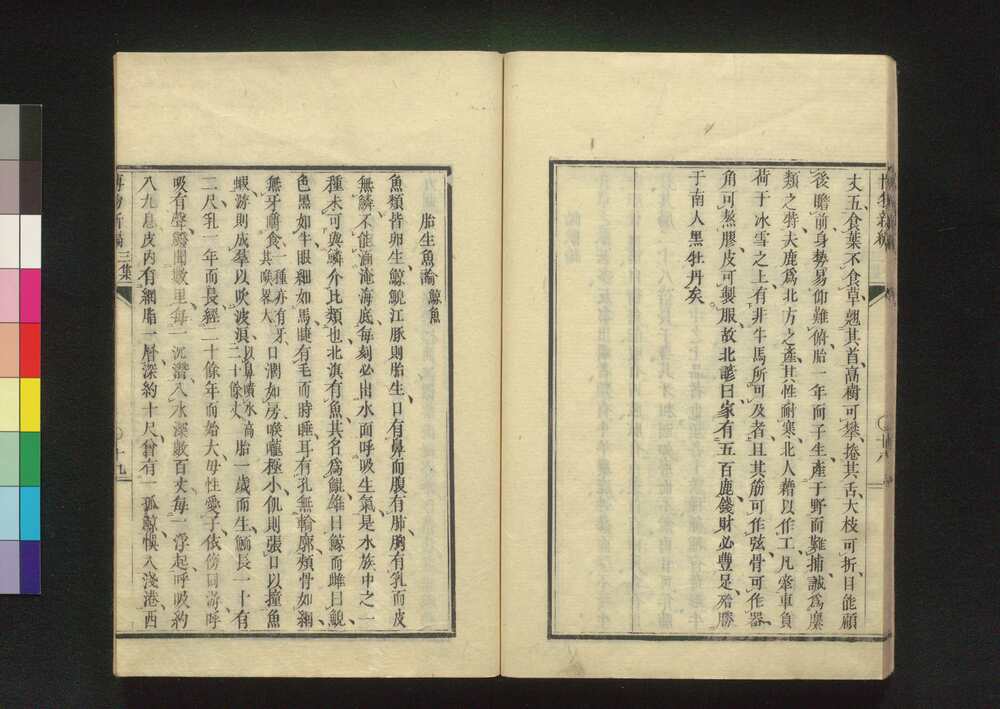 博物新編
丈五食葉不食草翹其首高樹可攀捲其舌大枝可折目能顧
後瞻前身勢易仰難俯胎一年而子生產于野而難捕誠爲麋
類之特夫鹿爲北方之產其性耐寒北人藉以作工凡牽車負
荷于冰雪之上有非牛馬所可及者且其筋可作弦骨可作器
角可熬膠皮可製服故北諺曰家有五百鹿錢財必豊足殆勝
于南人黑牡丹矣
胎生魚論 鯨魚
魚類皆卵生鯨鯢江豚則胎生口有鼻而腹有肺胸有乳而皮
無鱗不能涵淹海底每刻必出水面呼吸生氣是水族中之一
種未可與鱗介比類也北溟有魚其名爲鱷雄曰鯨而雌曰鯢
色黑如牛眼細如馬睫有毛而時睡耳有孔無輪廓頰骨如網
無牙嚼食一種亦有牙其喉畧大口濶如房喉嚨極小飢則張口以撞魚
蝦游則成羣以吹波浪以鼻噴水高二十餘丈胎一歲而生鯝長一十有
二尺乳一年而長經二十餘年而始大母性愛子依傍同游呼
吸有聲響聞數里每一沉潛入水深數百丈每一浮起呼吸約
八九息皮內有網脂一層深約十尺曾有一孤鯨悞入淺港西
博物新編 三集
十九